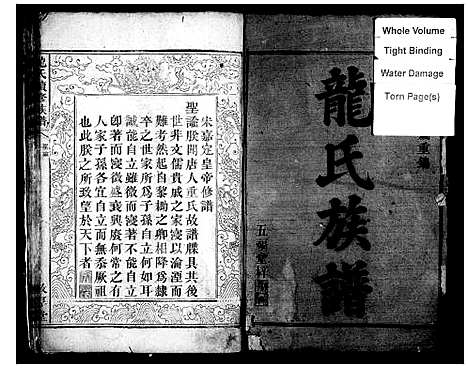 Whole Volume
Tight Binding
Water Damage
Torn Page(s)
重編
龍氏族譜
五
宋嘉定皇帝修譜
聖諭朕聞唐人重氏故譜牒具其後
世非文儒貴戚之家寖以淪湮而
難考然起自黎之卿相降為隸
卒之世家所為子孫自立何如耳
誠能自立雖微而寖著不能自立
即著而寖微盛衰興廢何常之有
人家子孫各宜自立無忝厥祖
也此朕之所致望於天下也